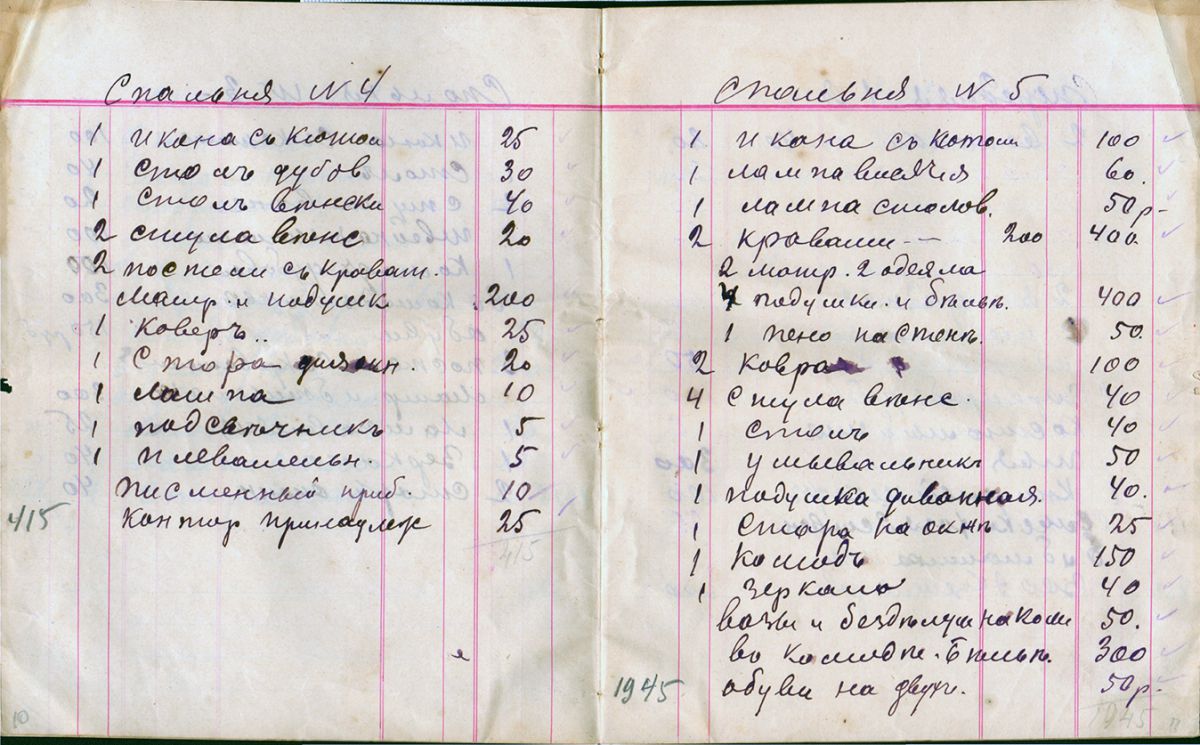 Спальня N 4
1 икона съ кiотом 25
1 столъ дубов 30
1 столъ вѣнски 40
2 стула вѣнс 20
2 постели съ кроват.
матр. и подушк 200
1 коверъ.. 25
1 Стора для окн. 20
1 Лампа 10
1 подсвѣчникъ 5
1 плевательн. 5
писменный приб. 10
415 Контор принадлеж 25
415
10
Спальня N 5
1 икона съ кiотом 100
1 лампа висячия 60.
1 лампа столов. 50р-
2 кровати — 200 400.
2 матр. 2 одеяла
4 подушки. и бѣльѣ. 400
1 пено на стѣнѣ. 50.
2 ковра 100
4 Стула вѣнс. 40
1 столъ 40
1 умывальникъ 50
1 подушка диванная. 40.
1 Стора на окнѣ 25
1 Комодъ 150
1 Зеркало 40
вазы и бездѣлуш на ком 50.
во комодѣ. Бѣльѣ. 300
1945. обуви на двухъ. 50р.
1945
11